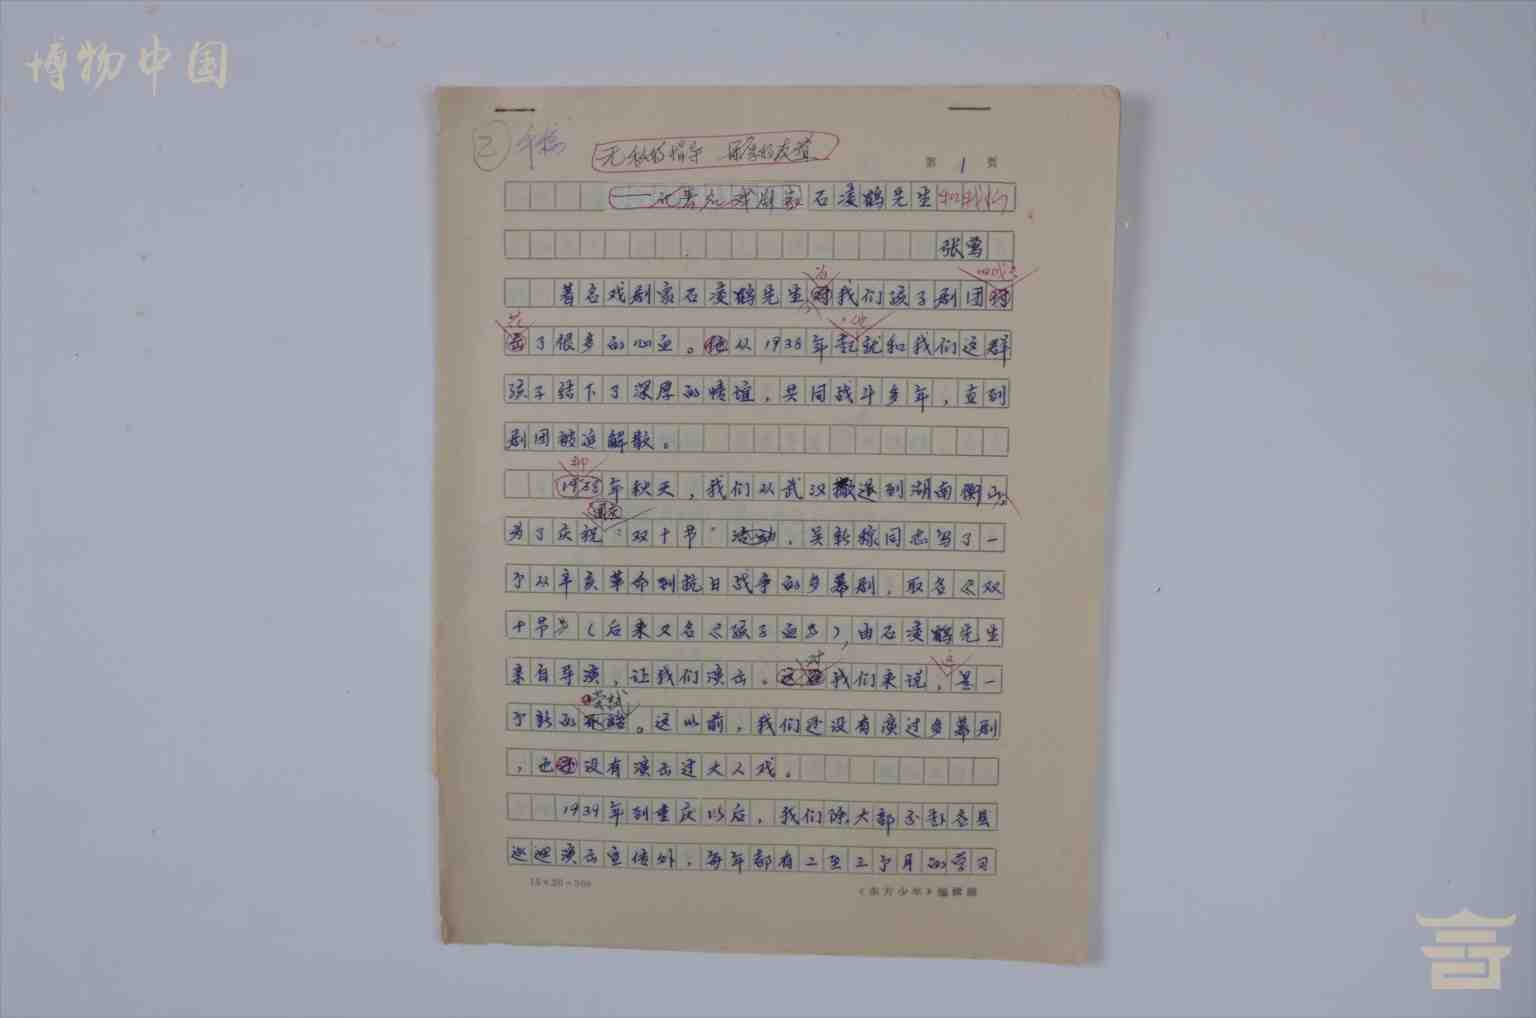 博物中国
② 手稿
无私的指导 深厚的友谊
第 1 页
——记著名戏剧家石凌鹤先生和我们
张莺
著名戏剧家石凌鹤先生为我们孩子剧团
花了很多的心血。他从1938年起就和我们这群
孩子结下了深厚的情谊，共同战斗多年，直到
剧团被迫解散。
年秋天，我们从武汉撤退到湖南衡山，
为了庆祝国庆“双十节”活动，吴新稼同志写了一
个从辛亥革命到抗日战争的多幕剧，取名《双
十节》（后来又名《孩子血》），由石凌鹤先生
亲自导演，让我们演出。这对我们来说，是一
个新的尝试。这以前，我们还没有演过多幕剧
，也没有演出过大人戏。
1939年到重庆以后，我们除大部分赴各县
巡迴演出宣传外，每年都有二至三个月的学习
15×20=300
《东方少年》编辑部